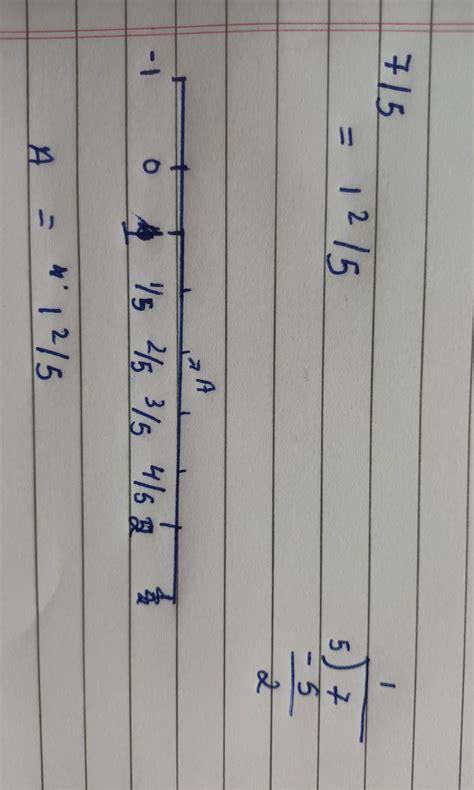 7/5
= 1 2/5
1
5) 7
- 5
2
A
-1 0 1/5 2/5 3/5 4/5
A = 1 2/5